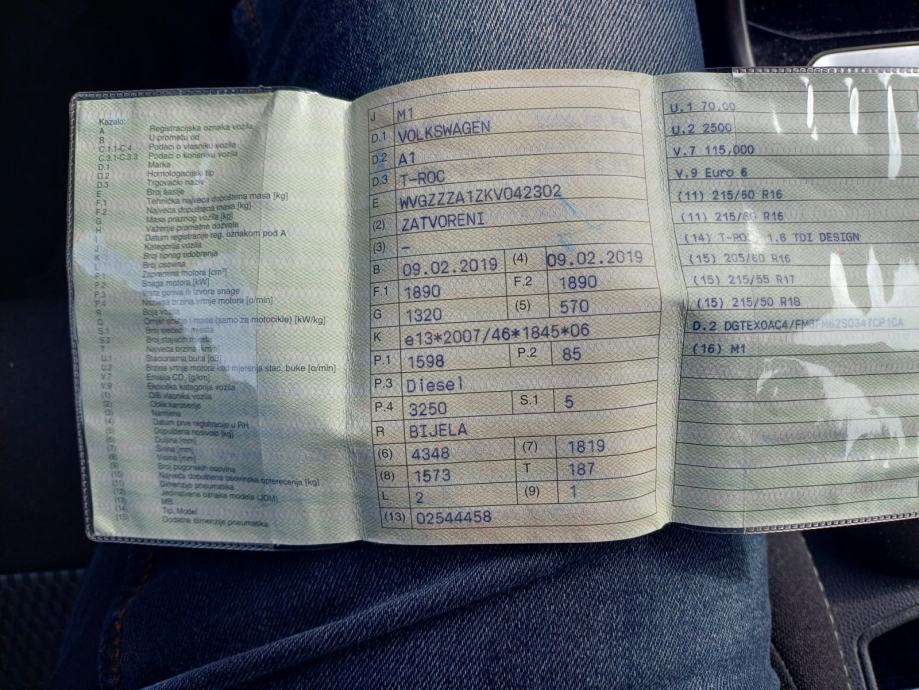 Kazalo:
A Registracijska oznaka vozila
B U prometu od
C.1.1-C.4 Podaci o vlasniku vozila
C.3.1-C.3.3 Podaci o korisniku vozila
D.1 Marka
D.2 Homologacijski tip
D.3 Trgovački naziv
E Broj šasije
F.1 Tehnička najveća dopuštena masa [kg]
F.2 Najveća dopuštena masa [kg]
G Masa praznog vozila [kg]
H Važenje prometne dozvole
Datum registracije reg. oznakom pod A
Kategorija vozila
K Broj tipnog odobrenja
L Broj osovina
Zapremina motora [cm³]
P.2 Snaga motora [kW]
P.3 Vrsta goriva ili izvora snage
P.4 Nazivna brzina vrtnje motora [o/min]
R Boja vozila
Q (samo za motocikle) [kW/kg]
S.1 Broj sjedećih mjesta
S.2 Broj stajaćih mjesta
T Najveća brzina
U.1 Stacionarna buka
U.2 Brzina vrtnje motora kod mjerenja stac. buke [o/min]
V.7 Emisija CO₂ [g/km]
V.9 Ekološka kategorija vozila
(1) OIB vlasnika vozila
(2) Oblik karoserije
(3) Namjena
(4) Datum prve registracije u RH
(5) Dopuštena nosivost [kg]
(6) Duljina [mm]
(7) Širina [mm]
(8) Visina [mm]
(9) Broj pogonskih osovina
(10) Najveća dopuštena osovinska opterećenja [kg]
(11) Dimenzije pneumatika
(12) Jedinstvena oznaka modela (JOM)
(13) MB
(14) Tip, Model
(15) Dodatne dimenzije pneumatika
J M1
D.1 VOLKSWAGEN
D.2 A1
D.3 T-ROC
E WVGZZZA1ZKV042302
(2) ZATVORENI
(3) –
B 09.02.2019 (4) 09.02.2019
F.1 1890 F.2 1890
G 1320 (5) 570
K e13*2007/46*1845*06
P.1 1598 P.2 85
P.3 Diesel
P.4 3250 S.1 5
R BIJELA
(6) 4348 (7) 1819
(8) 1573 T 187
L 2 (9) 1
(13) 02544458
U.1 70,00
U.2 2500
V.7 115,000
V.9 Euro 6
(11) 215/60 R16
(11) 215/60 R16
(14) T-ROC 1.6 TDI DESIGN
(15) 205/60 R16
(15) 215/55 R17
(15) 215/50 R18
D.2 DGTEX0AC4/FM6FM62S0347CP1CA
(16) M1